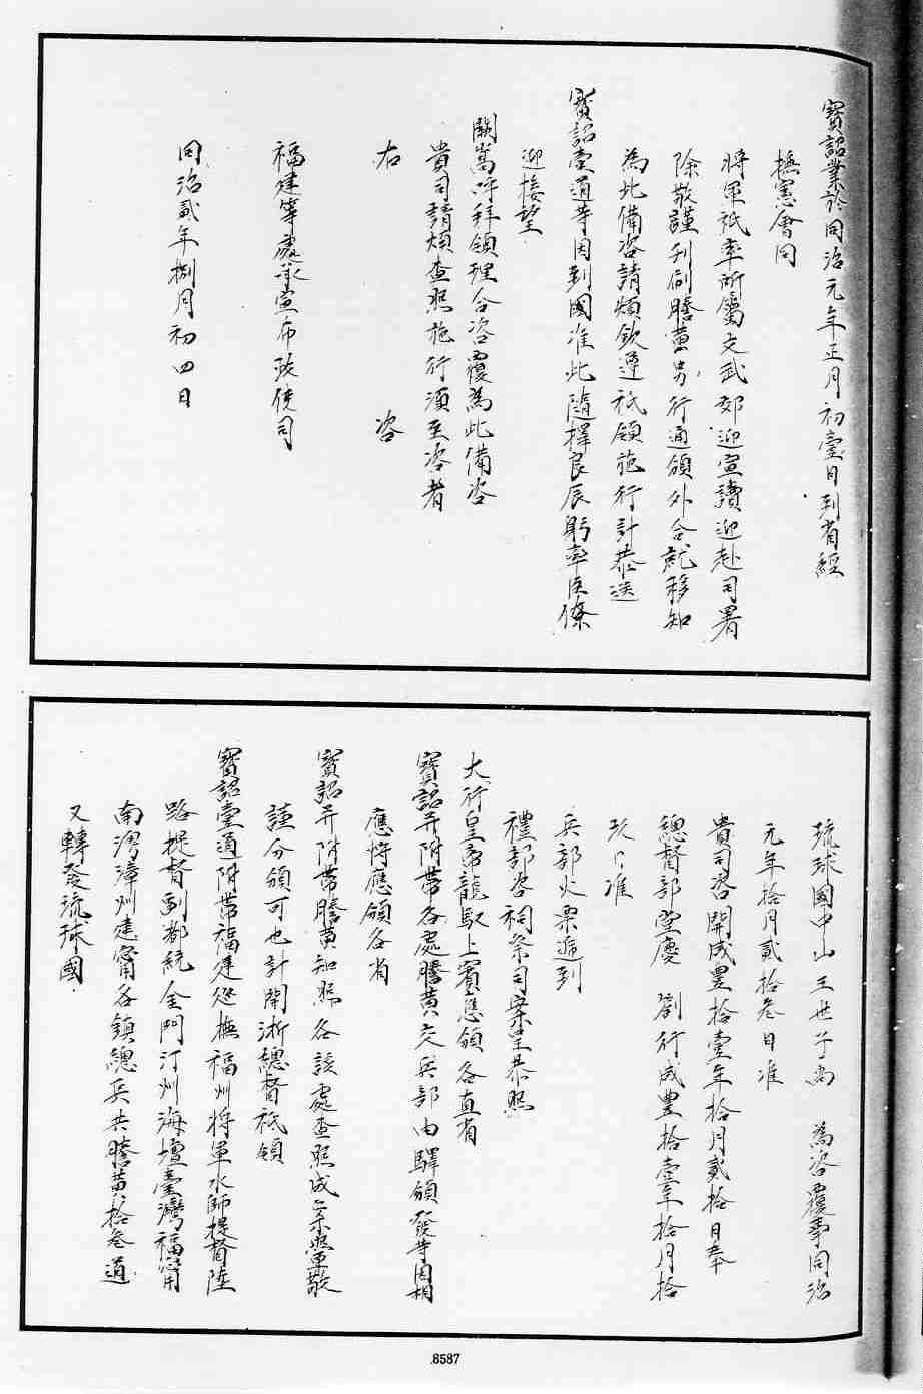 寶詔業於同治元年正月初壹日到省經
撫憲會同
將軍祇率所屬文武郊迎宣讀迎赴司署
除敬謹刊刷謄黃另行通頒外合就移知
為此備咨請煩欽遵祇領施行計恭送
寶詔壹道等因到國准此隨擇良辰躬率臣僚
迎接望
闕嵩呼拜領理合咨覆為此備咨
貴司請煩查照施行須至咨者
右 咨
福建等處承宣布政使司
同治貳年捌月初四日
琉球國中山王世子尚 為咨覆事同治
元年拾月貳拾叁日准
貴司咨開咸豐拾壹年拾月貳拾日奉
總督部堂慶 劄行咸豐拾壹年拾月拾
玖日准
兵部火票遞到
禮部咨祠祭司案呈恭照
大行皇帝龍馭上賓應頒各直省
寶詔并附帶各處謄黃交兵部由驛頒發等因相
應將應頒各省
寶詔并附帶謄黃知照各該處查照成案當敬
謹分頒可也計開浙總督祇領
寶詔壹道附帶福建巡撫福州將軍水師提督陸
路提督副都統金門汀州海壇臺灣福寧
南澳漳州建寧各鎮總兵共謄黃拾叁道
又轉發琉球國
8587